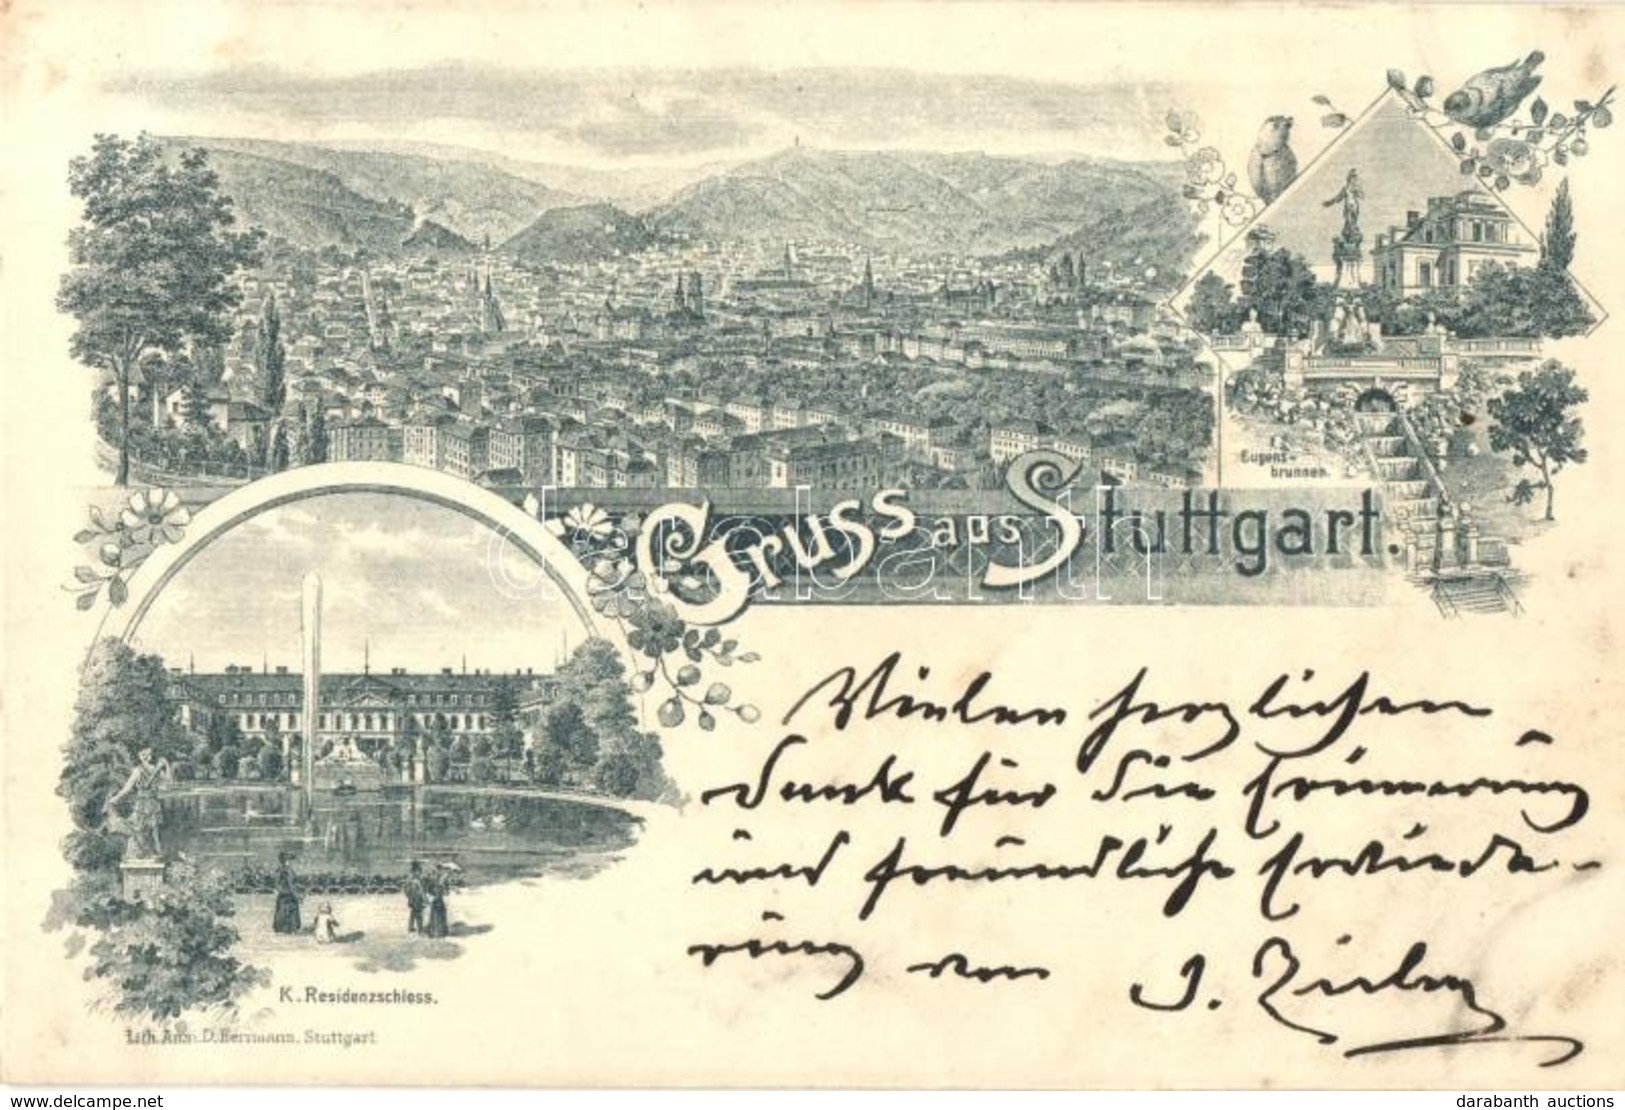 Eugens-
brunnen.
Gruss aus Stuttgart.
K. Residenzschloss.
Lith. Anst. D. Herrmann, Stuttgart
Vielen herzlichen
Dank für Die Erinnerung
und freundliche Erwiede-
rung von J.
darabanth
www.delcampe.net
darabanth auctions